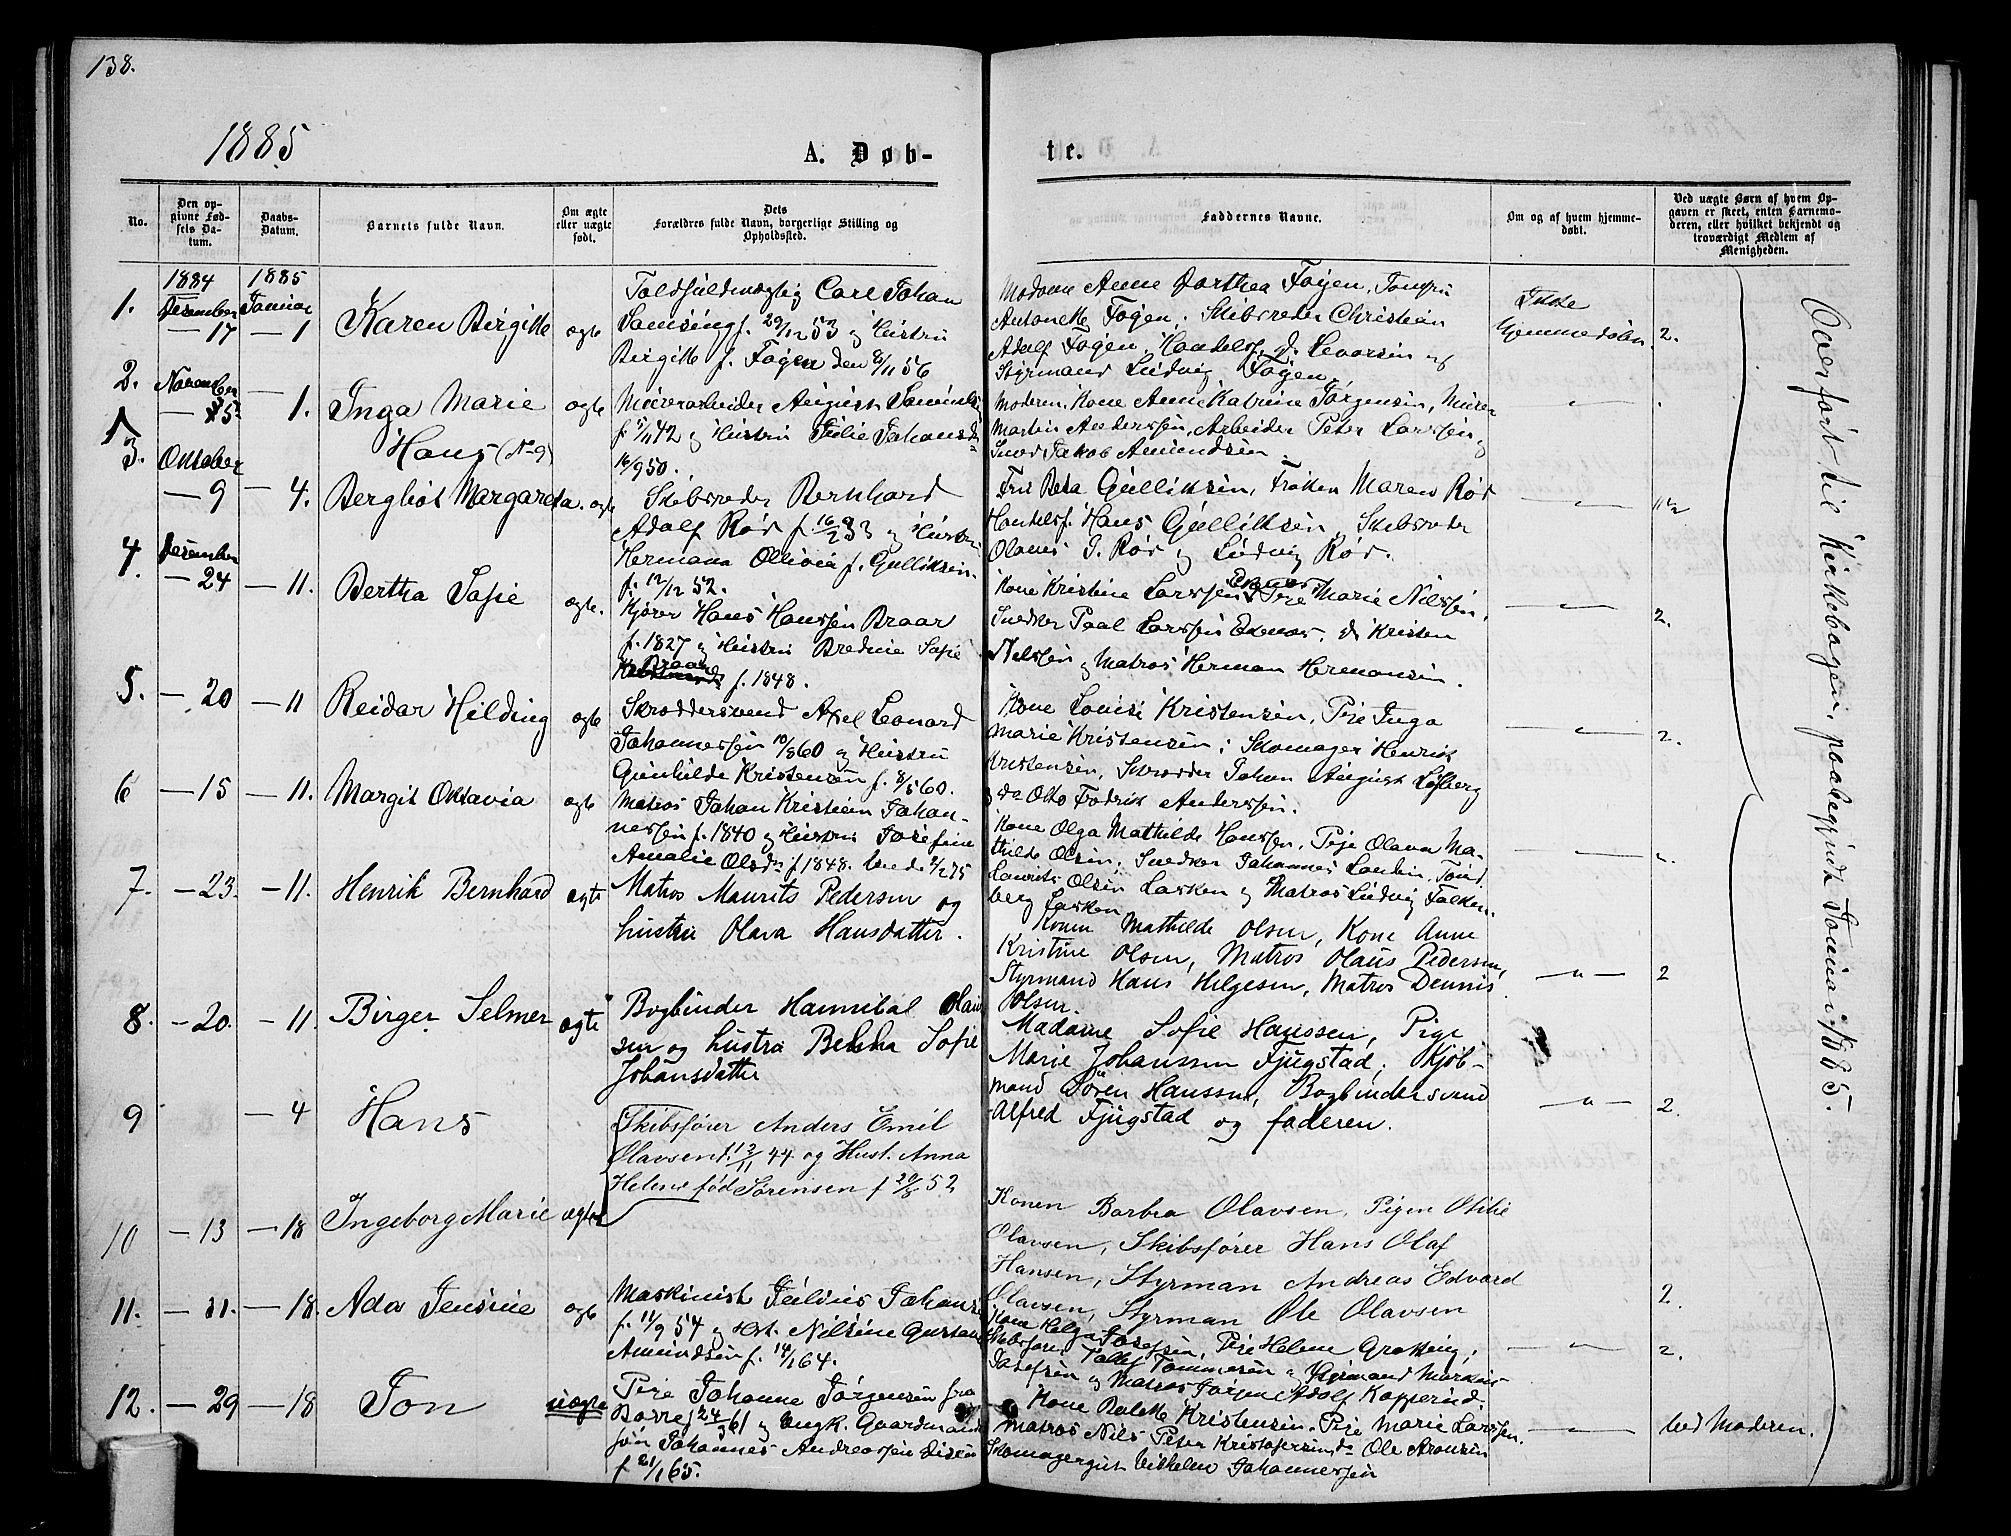 138.
1885
A. Døb-
te.
No.
Den op-
givne Fød-
sels Da-
tum.
Daabs-
Datum.
Barnets fulde Navn.
Om ægte
eller uægte
født.
Dets
Forældres fulde Navn, borgerlige Stilling og
Opholdssted.
Faddernes Navne.
Om og af hvem hjemme-
døbt.
Ved uægte Børn af hvem Op-
gaven er skeet, enten Barnemo-
deren, eller hvilket bekjendt og
troværdigt Medlem af
Menigheden.
1.
1884
Desember
— 17
1885
Januar
— 1
Karen Birgitte
ægte
Toldfuldmægtig Carl Johan
Samsing f. 29/12 53 og Hustru
Birgitte f. Føyen den 8/11 56
Madame Anne Dorthea Føyen, Jomfru
Antonette Føyen. Skibsreder Christian
Adolf Føyen, Handelsf. J. Levorsen og
Styrmand Ludvig Føyen.
Ikke
hjemmedøbt
2.
2.
November
— 5
— 1.
Inga Marie
ægte
Murerarbeider August
f. 5/11 42 og Hustru Julie Johansd
16/9 50.
Moderen, Kone Anne Katrine Jørgensen, Murer
Martin Anderssen, Arbeider Peter Larssen og
Jakob Amundsen.
Hans (No 9)
3.
Oktober
— 9
— 4.
Bergliot Margareta.
ægte
Skibsreder Bernhard
Adolf Rød f. 16/2 53 og Hustru
Hermana Ollivia f. Gulliksen
f. 12/12 52.
Fru Beta Gulliksen, Frøken Maren Rød
Handelsf. Hans Gulliksen, Skibsreder
Olaves G. Rød og Ludvig Rød.
4.
Desember
— 24
— 11.
Bertha Sofie
ægte.
Kjører Hans Hanssen Braar
f. 1827 og Hustru Bredine Sofie
Braar f. 1848.
Kone Kristine Larssen Pige Marie Nilssen,
Snedker Paal Larssen Exenæs, do Kristen
Nilssen og Matros Herman Hermansen.
2.
5.
— 20
— 11
Reidar Hilding
ægte
Skræddersvend Axel Leonard
Johannessen 10/8 60 og Hustru
Gunhilde Kristensen f. 8/5 60.
Kone Louise Kristensen, Pige Inga
Marie Kristensen; Skomager Henrik
Kristensen, Skrædder Johan August Løfberg
og do Otto Fredrik Anderssen.
2.
6
— 15
— 11.
Margit Oktavia
ægte
Matros Johan Kristian Johan-
nessen f. 1840 og Hustru Josefine
Amalie Olsdr f. 1848.
Kone Olga Mathilde Hanssen, Pige Olava Ma-
thilde Olsen; Snedker Johannes
Laurits Olsen Larken og Matros Ludvig Falken-
berg Larken
7.
— 23.
— 11.
Henrik Bernhard
ægte
Matros Maurits Pedersen og
hustru Olava Hansdatter.
Konen Mathilde Olsen, Kone Anne
Kristine Olsen, Matros Olaus Pedersen,
Styrmand Hans Helgesen, Matros Dennis
Olsen.
— " —
2
8.
— 20.
— 11.
Birger Selmer
ægte
Bogbinder Hannibal Olaus
sen og hustru Betha Sofie
Johansdatter
Madame Sofie Hanssen, Pige
Marie Johanssen Fjugstad; Kjøb-
mand Søren Hanssen, Bogbindersvend
Alfred Fjugstad og faderen.
— " —
2.
9
— 4
Hans
Skibsfører Anders Emil
Olavsen f. 12/11 44 og Hust. Anna
Helene fød Sørensen f 20/8 52
10
— 13
— 18
Ingeborg Marie
ægte
Konen Barbra Olavsen, Pigen Otilie
Olavsen, Skibsfører Hans Olaf
Hansen, Styrman Andreas Edvard
Olavsen, Styrman Ole Olavsen
2.
11.
— 31.
— 18.
Ada Jensine
ægte
Maskinist Julius Johans
f. 11/9 54 og Hst. Nilsine Gustava
Amundsen f. 14/1 64.
Kone Helga Josefsen, Pige Helene Grøtting;
Skibsfører Tollef Tommesen og Styrmand Markus
Josefsen og Matros Jørgen Adolf
2.
12.
— 29
— 18
Jon
uægte
Pige Johanne Jørgensen fra
Borre f 24/3 61 og Ungk. Gaardmands
søn Johannes Andreassen
f 21/1 65.
Kone Bolette Kristensen. Pige Marie Larssen.
Matros Nils Peter Kristofersen do Ole Aronsen
Skomagergut Vilhelm Johannessen
ved Moderen.
Overført til Kirkebogen, paabegyndt Januar 1885.